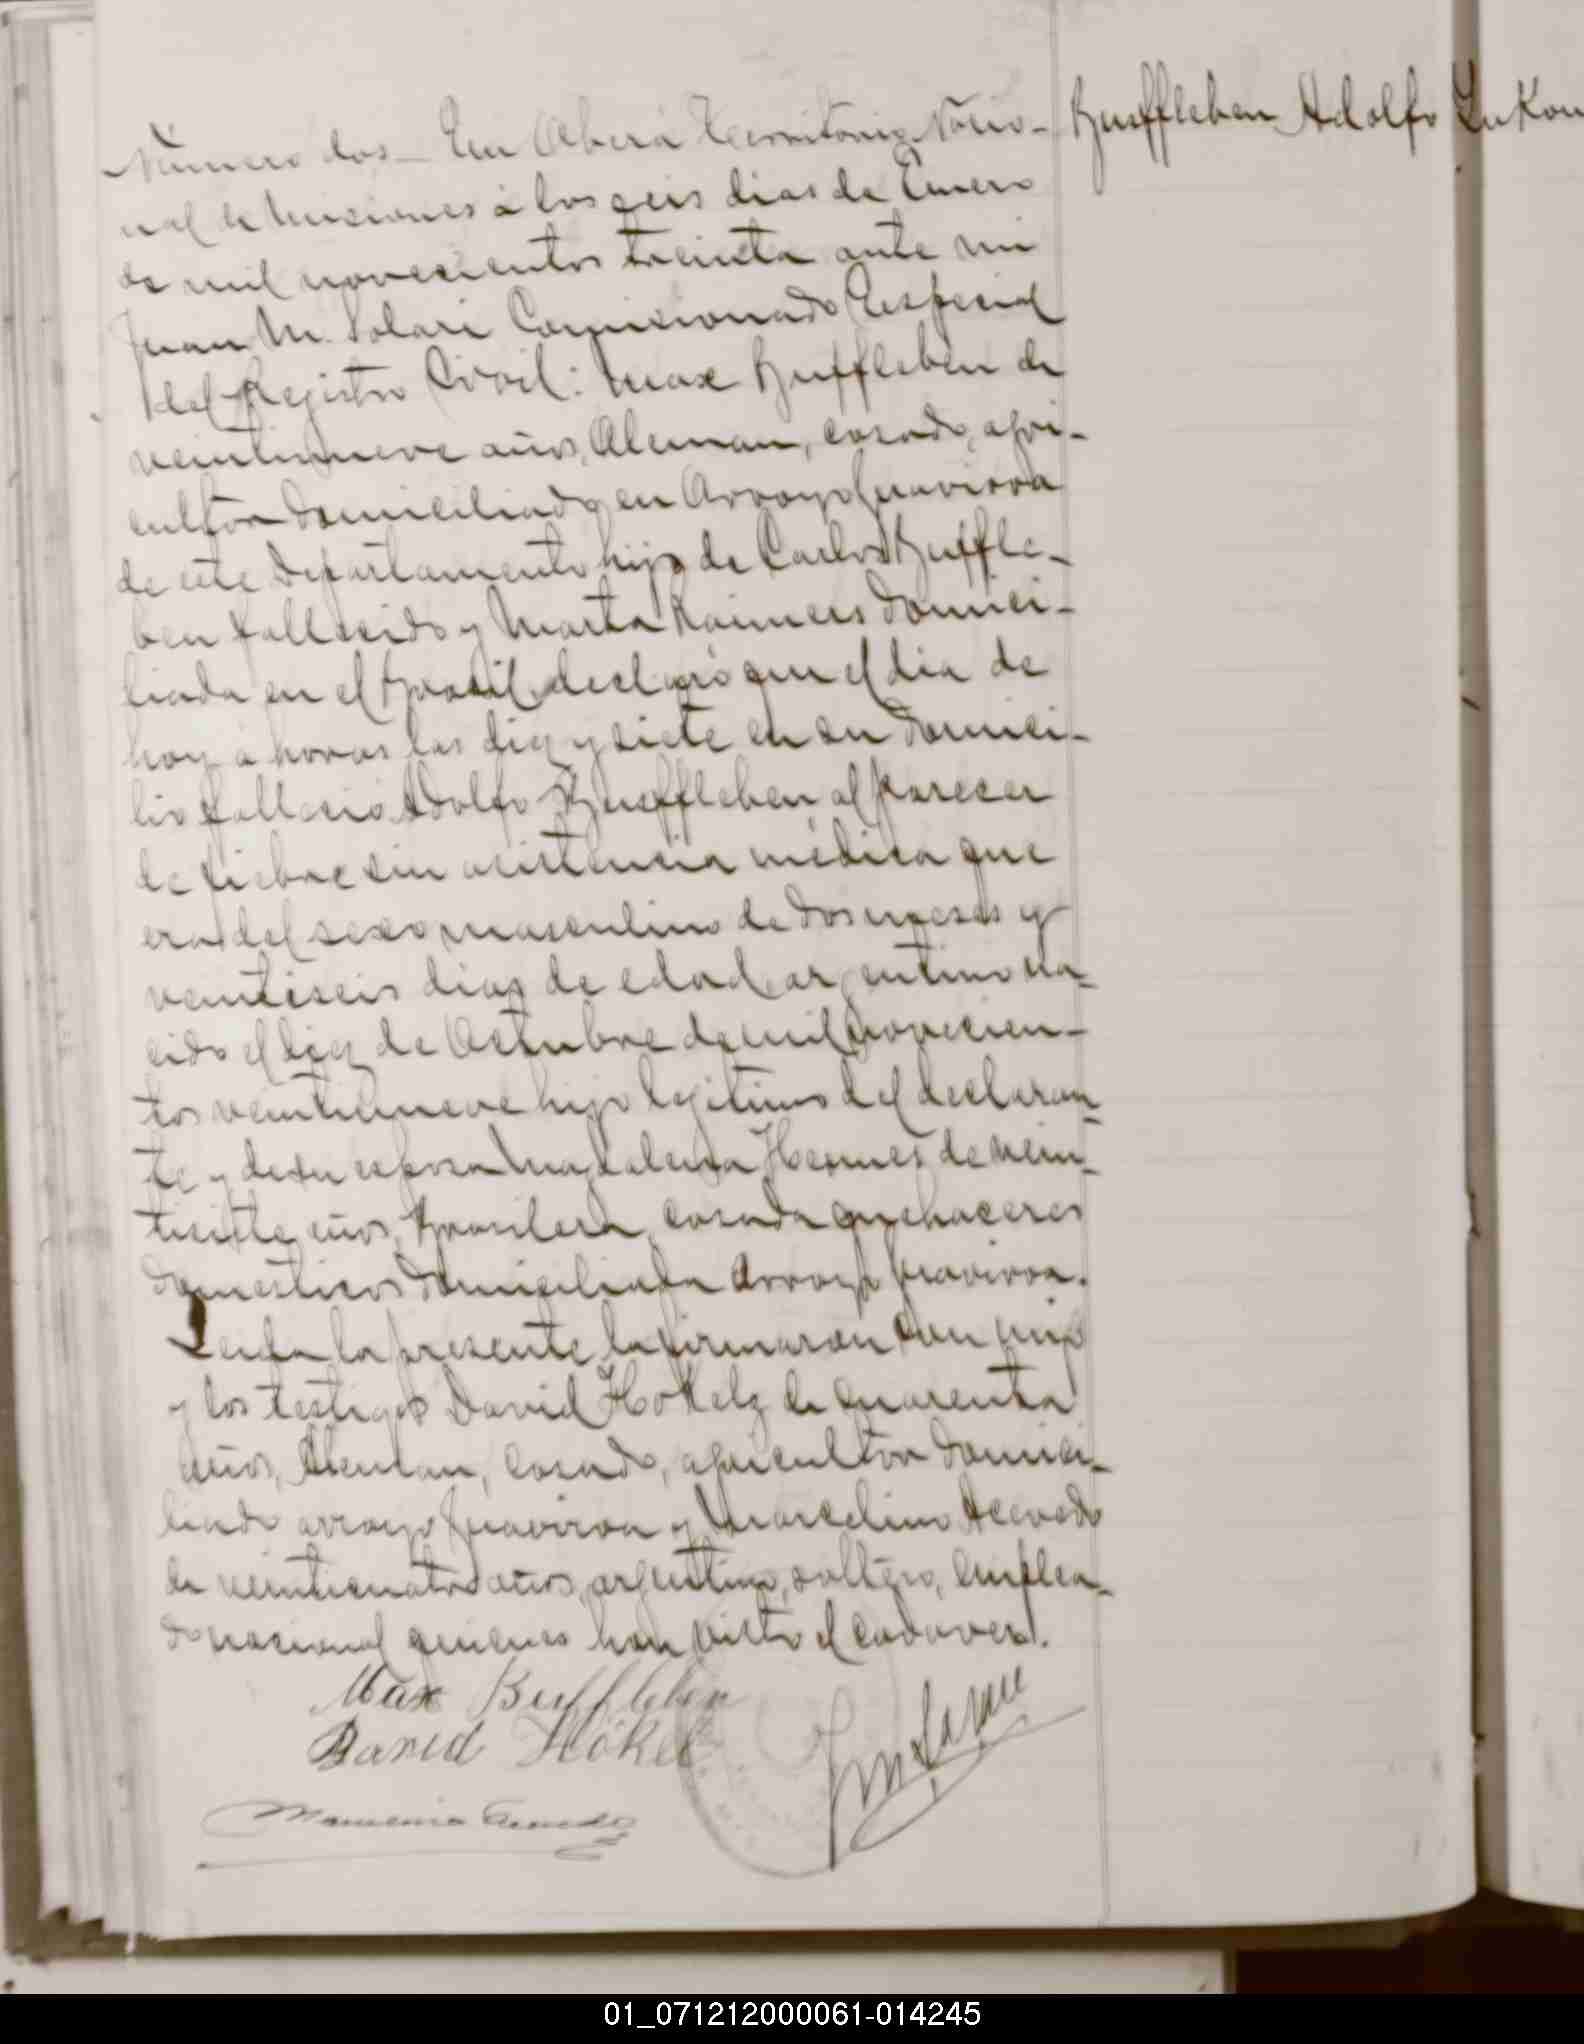 Número dos_ En Oberá Territorio Nacio-
nal de Misiones á los seis dias de Enero
de mil novecientos treinta ante mi
Juan M. Solari Comisionado Especial
del Registro Civil: Max Buffleben de
veintinueve años, Aleman, casado, agri-
cultor domiciliado en Arroyo Guavirova
de este Departamento hijo de Carlos Buffle-
ben fallecido y Marta Raimers domici-
liada en el Brasil declaró que el dia de
hoy á horas las diez y siete en su domici-
lio falleció Adolfo Buffleben al parecer
de fiebre sin asistencia médica que
era del sexo masculino de dos meses y
veintiseis dias de edad argentino na-
cido el diez de Octubre de mil novecien-
tos veintinueve hijo legitimo del declaran-
te y de su esposa Magdalena Hermes de vein-
tisiete años, Brasilera, casada quehaceres
domesticos domiciliada Arroyo Guavirova.
Leida la presente la firmaron con migo
y los testigos David Hokelz de cuarenta
años, Aleman, casado, agricultor domici-
liado arroyo Guavirova y Marcelino Acevedo
de veinticuatro años, argentino, soltero, emplea-
do nacional quienes han visto el cadaver.
Max Buffleben
David Hökel
Acevedo
Buffleben Adolfo
01_071212000061-014245